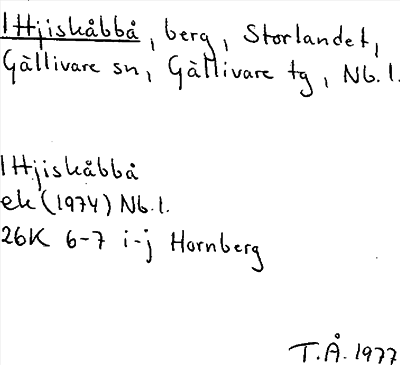 Ittjiskåbbå, berg, Storlandet,
Gällivare sn, Gällivare tg, Nb. l.
Ittjiskåbbå
ek (1974) Nb. l.
26K 6-7 i-j Hornberg
T.Å. 1977